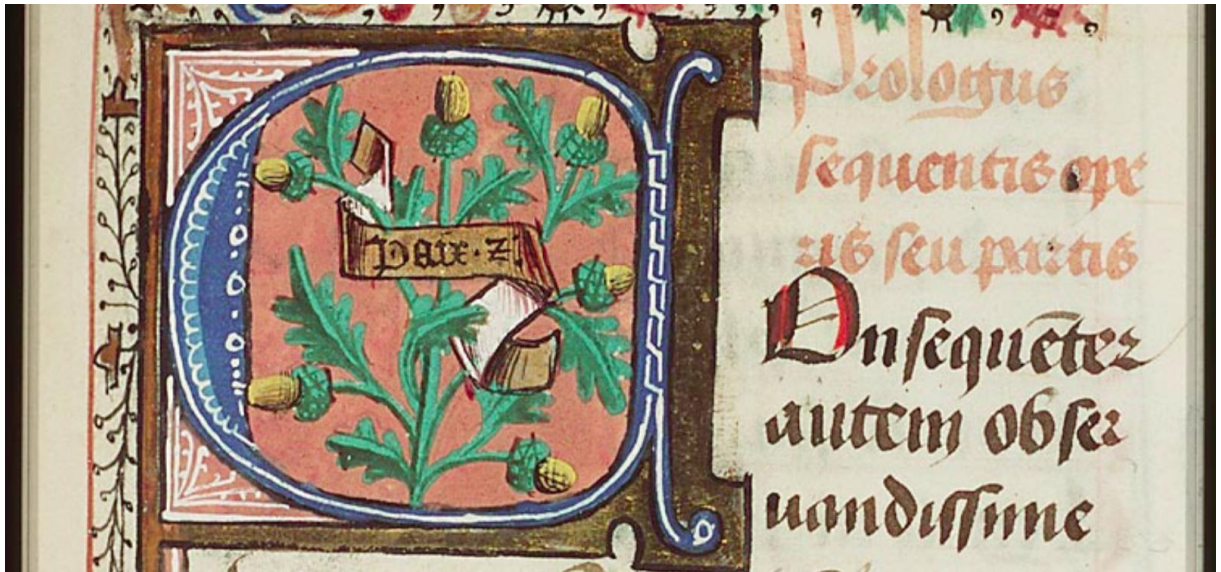 Paix·z
Prologus
sequentis ope
ris seu partis
Onsequēter
autem obser
uandissime